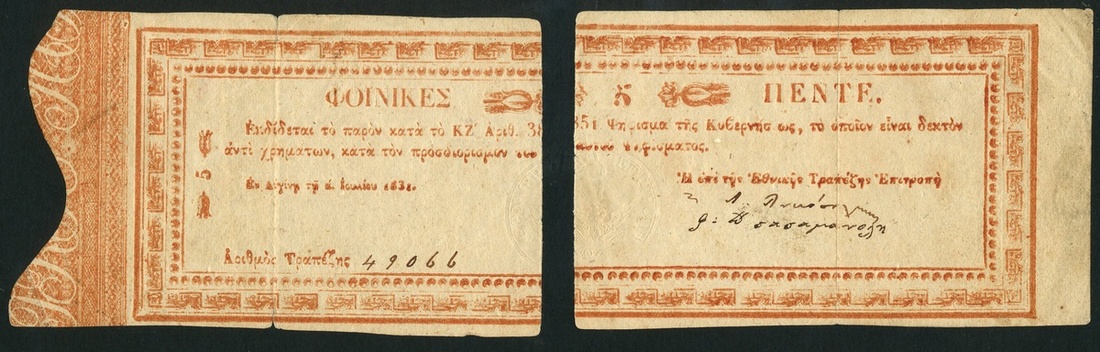 ΦΟΙΝΙΚΕΣ 5 ΠΕΝΤΕ.
Εκδίδεται τὸ παρὸν κατὰ τὸ ΚΖ' Αριθ. 38 85 1. Ψήφισμα τῆς Κυβερνήσ ως, το οποῖον εἶναι δεκτὸν
ἀντὶ χρημάτων, κατὰ τὸν προσδιορισμὸν του ψηφίσματος.
5
Εν Αἰγίνῃ τῇ ά. Ἰουλίου 1831.
Ἡ ἐπὶ τῆς Ἐθνικῆς Τραπέζης Ἐπιτροπὴ
Ἀριθμὸς Τραπέζης 49066